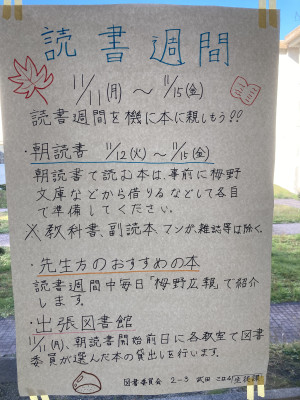 読書週間
11/11(月) ～ 11/15(金)
読書週間を機に本に親しもう!?
・朝読書 11/12(火) ～ 11/15(金)
朝読書で読む本は、事前に梅野
文庫などから借りるなどして各自
で準備してください。
※教科書、副読本、マンガ、雑誌等は除く。
・先生方のおすすめの本
読書週間中毎日「梅野広報」で紹介
します。
・出張図書館
11/11(月)、朝読書開始前日に各教室で図書
委員が選んだ本の貸出しを行います。
図書委員会 2-3 武田